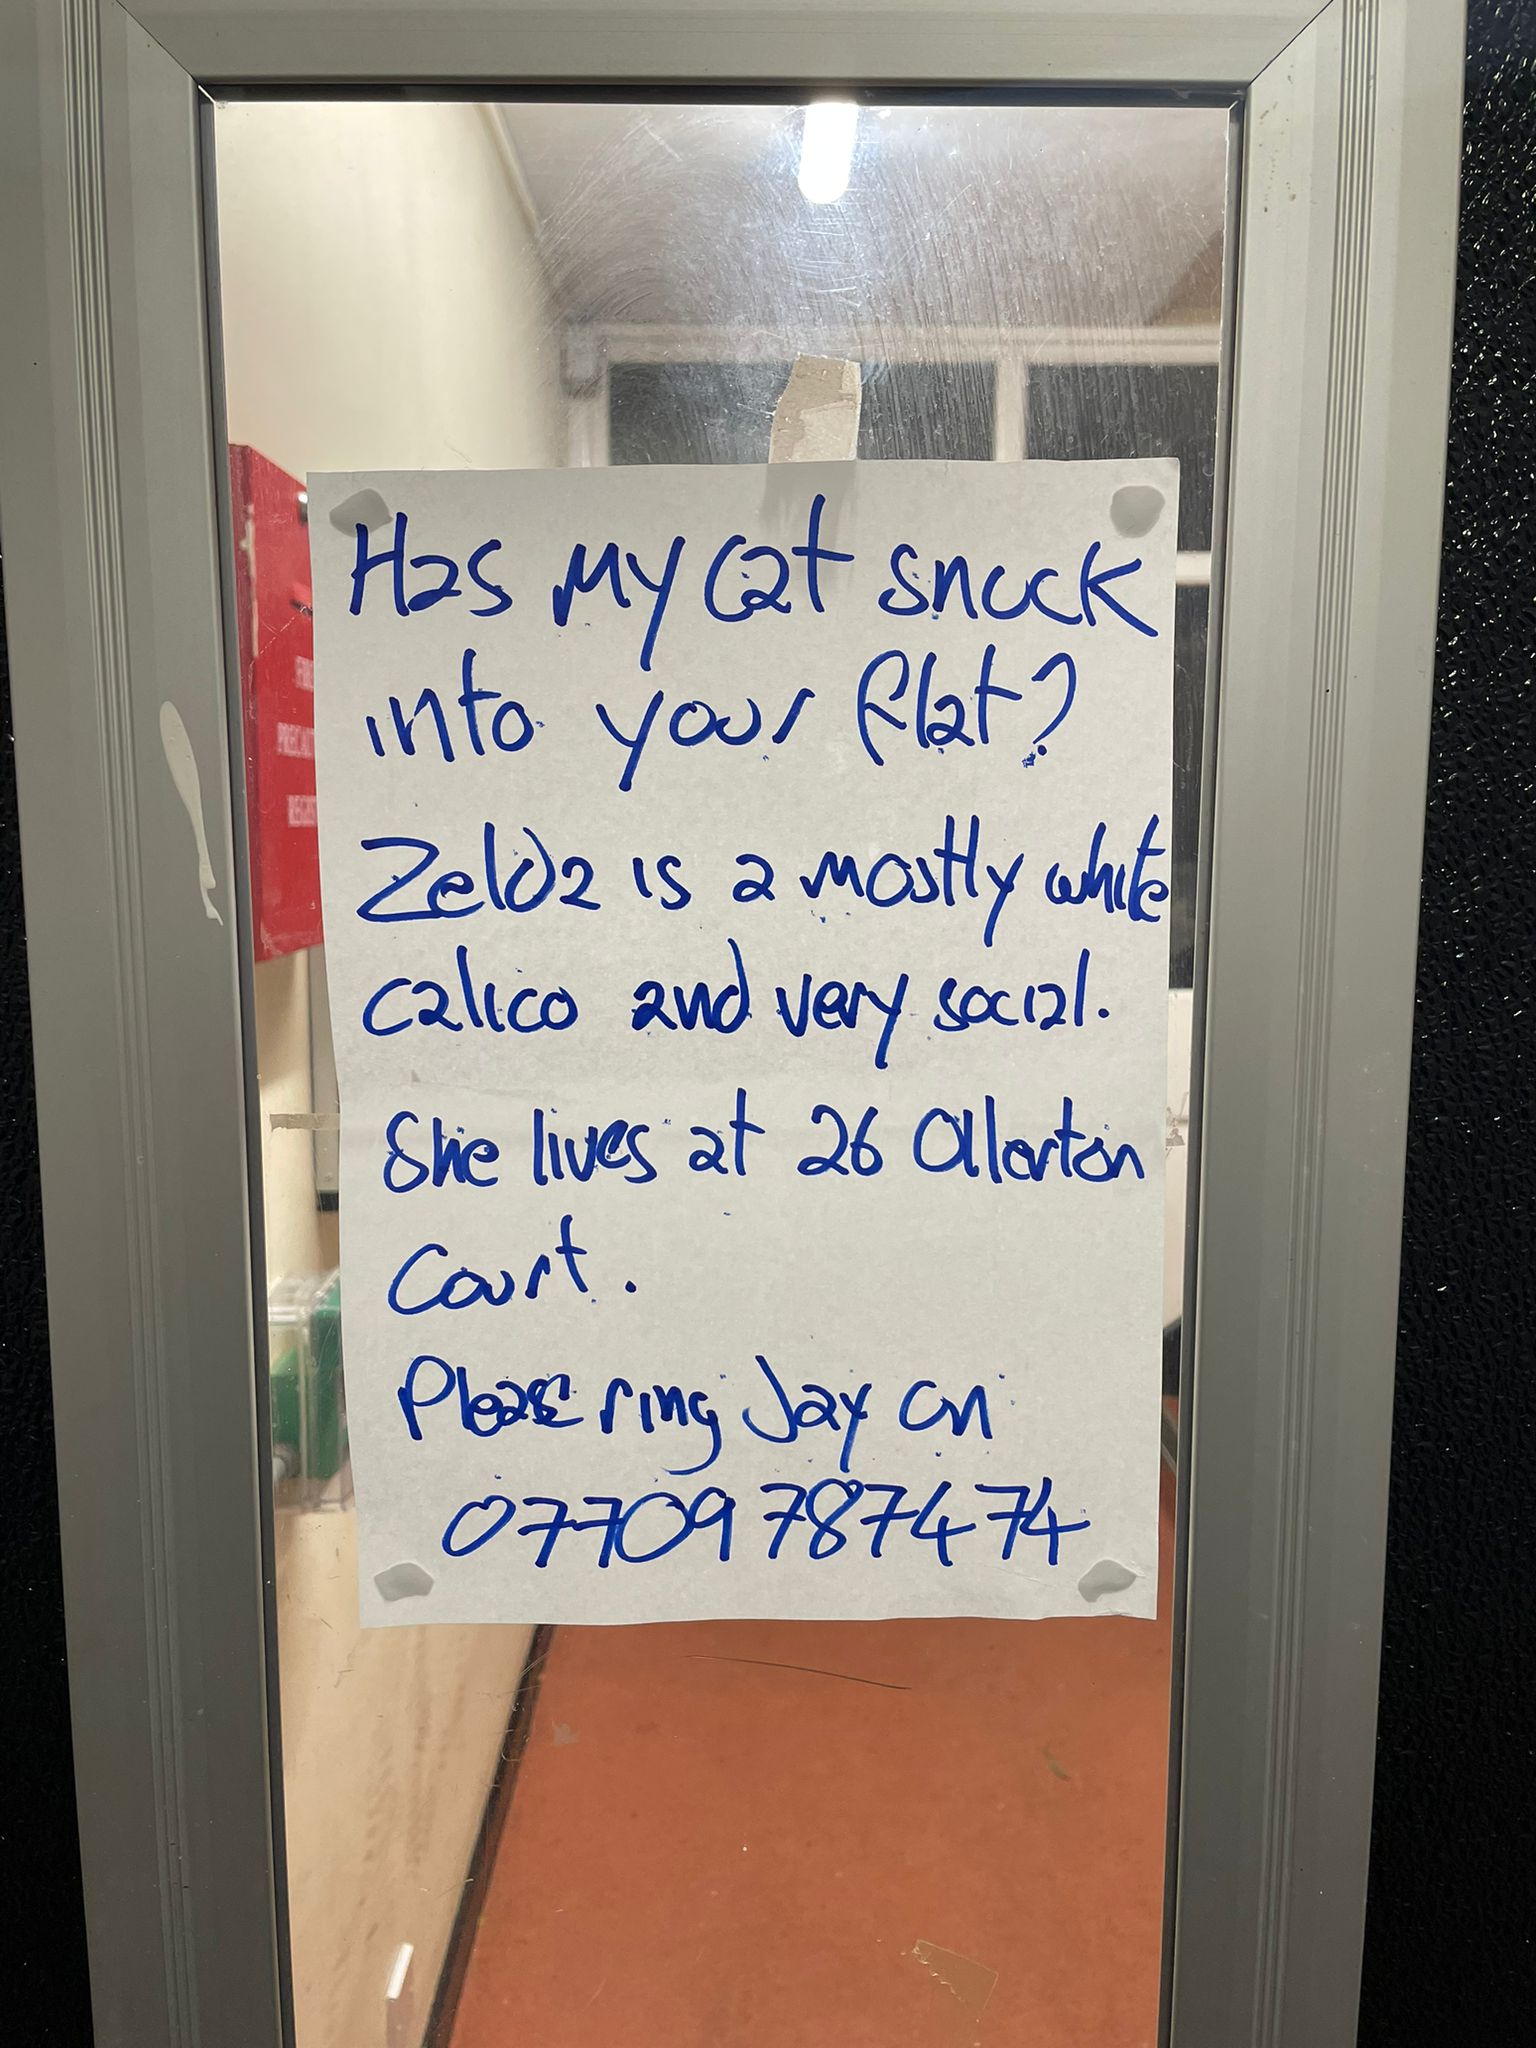 Has my cat snuck
into your flat?
Zelda is a mostly white
calico and very social.
She lives at 26 Ollerton
Court.
Please ring Jay on
07709 787474